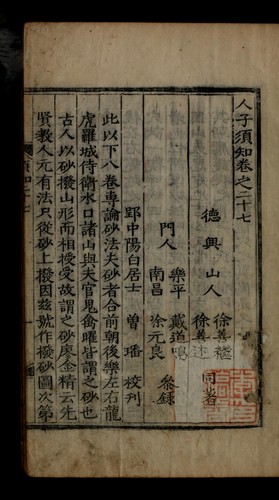 人子須知卷之二十七
德興山人 徐善繼 徐善述 同著
門人 樂平 戴道鳴 南昌 徐元良 叅錄
郢中陽白居士 曾璠 校刋
此以下八卷專論砂法夫砂者合前朝後樂左右龍
虎羅城侍衛水口諸山與夫官鬼禽曜皆謂之砂也
古人以砂撥山形而相授受故謂之砂廖金精云先
賢教人元有法只從砂上撥因兹號作撥砂圖次第